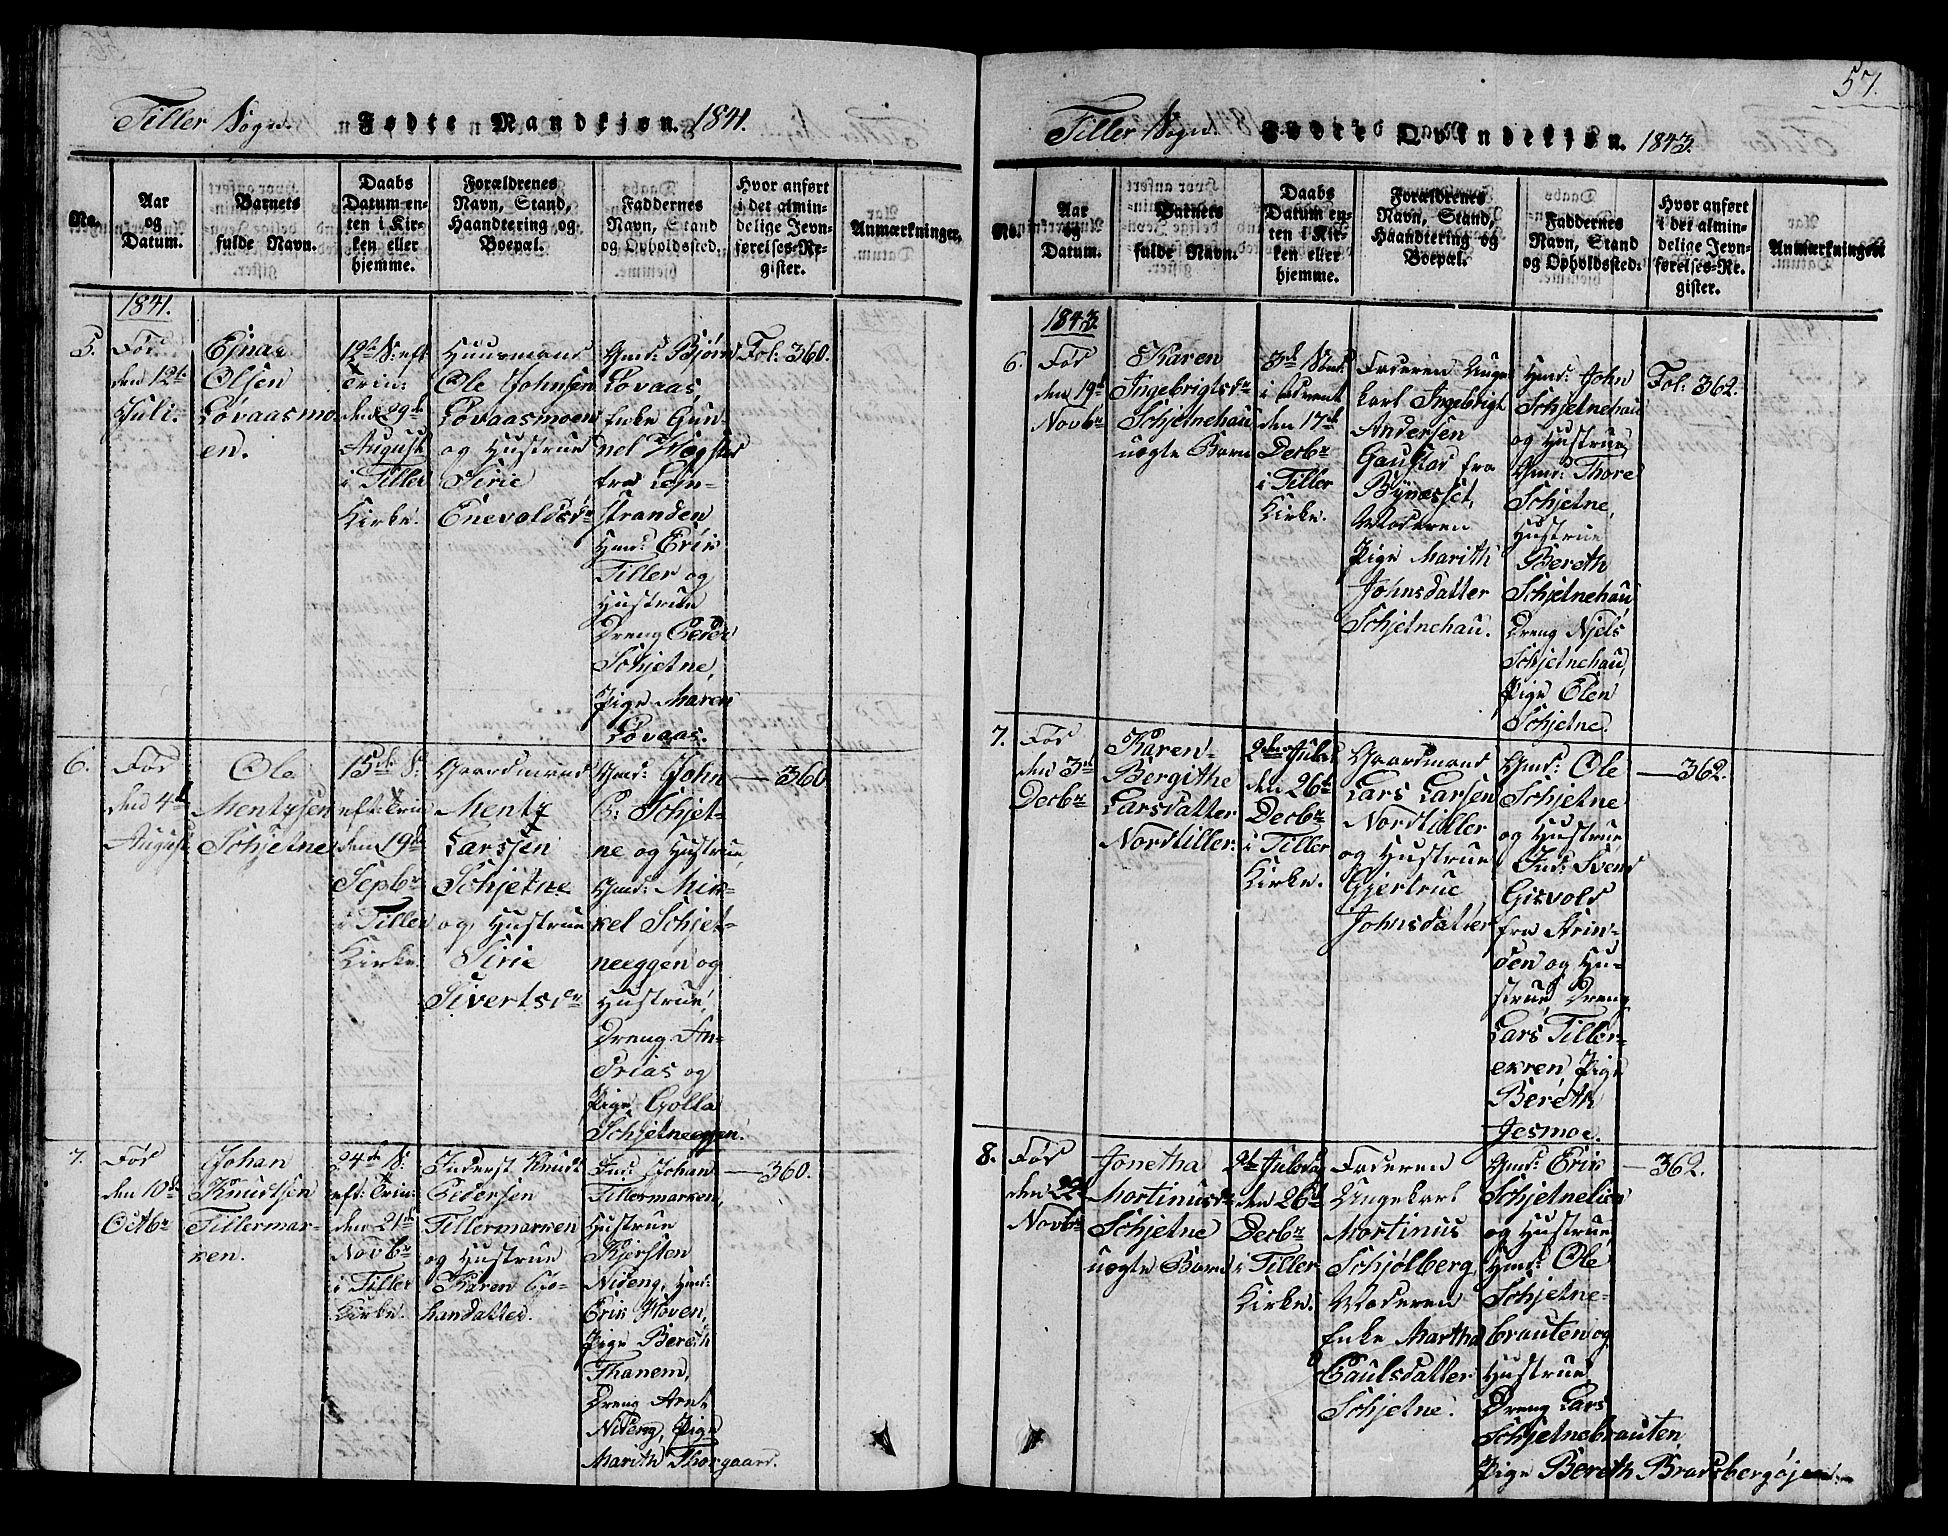 Tiller Sogn. Fødte Mandkjøn. 1841.
No.
Aar
og
Datum.
Barnets
fulde Navn.
Daabs
Datum en-
ten i Kir-
ken eller
hjemme.
Forældrenes
Navn, Stand,
Haandtering og
Boepæl.
Faddernes
Navn, Stand
og Opholdssted.
Hvor anført
i det almin-
delige Jevn-
førelses-Re-
gister.
Anmærkninger.
1841.
5.
Fød
den 12te
Juli.
Ejnar
Olsen
Løvaasmo
en.
12te S: eft
Trin:
den 29de
August
i Tiller
Kirke.
Huusmand
Ole Johnsen
Løvaasmoen
og Hustrue
Sirie
Enevoldsdr
Gmd: Bjørn
Løvaas,
Enke Gun-
nel
fra Lejn-
stranden
Hmd: Erik
Tiller og
Hustrue
Dreng Peder
Schjetne,
Pige Maren
Løvaas.
Fol: 360.
6.
Fød
den 4de
August
Ole
Mentzsen
Schjetne
15de S:
eft: Trin
den 19de
Septbr
i Tiller
Kirke.
Gaardmand
Mentz
Larssen
Schjetne
og Hustrue
Sirie
Sivertsdr
Gmd: John
P: Schjet-
ne og Hustrue,
Gmd: Mik-
kel Schjet-
neeggen og
Hustrue,
Dreng An-
drias og
Pige Golla
Schjetneeggen.
— 360
7.
Fød
den 10de
Octbr
Johan
Knudtsen
Tillermar-
ken.
24de S:
eft: Trin:
den 21de
Novbr
i Tiller
Kirke.
Inderst Knudt
Pedersen
Tillermarken
og Hustrue
Karen Jo-
handatter.
Ind: Johan
Tillermarken,
Hustrue
Kjersten
Nideng, Hmd:
Erik Hoven,
Pige Bereth
Thanem,
Dreng Arnt
Nideng, Pige
Marith Thorgaard.
— 360.
57.
Tiller Sogn. Fødte Qvindekjøn. 1843.
No.
Aar
og
Datum.
Barnets
fulde Navn.
Daabs
Datum en-
ten i Kir-
ken eller
hjemme.
Forældrenes
Navn, Stand,
Haandtering og
Boepæl.
Faddernes
Navn, Stand
og Opholdssted.
Hvor anført
i det almin-
delige Jevn-
førelses-Re-
gister.
Anmærkninger
1843.
6.
Fød
den 19de
Novbr
Karen
Ingebrigtsdr
Schjetnehau
uægte Barn
3die Sønd:
i Advent
den 17de
Decbr
i Tiller
Kirke.
Faderen Unge-
karl Ingebrigt
Andersen
Gaustad fra
Bynæsset,
Moderen
Pige Marith
Johnsdatter
Schjetnehau.
Hmd: John
Schjetnehau
og Hustrue,
Gmd: Thore
Schjetne,
Hustrue
Bereth
Schjetnehau
Dreng Njels
Schjetnehau,
Pige Elen
Schjetne.
Fol: 362.
7.
Fød
den 3die
Decbr
Karen-
Bergithe
Larsdatter
Nordtiller.
2den Juled
den 26de
Decbr
i Tiller
Kirke.
Gaardmand
Lars Larsen
Nordtiller
og Hustrue
Gjertrue
Johnsdatter
Gmd: Ole
Schjetne
og Hustrue
Ind: Svend
Gisvold
fra Strin-
den og Hu-
strue, Dreng
Lars Tiller-
exren, Pige
Bereth
Jesmoe.
— 362.
8.
Fød
den 22de
Novbr
Jonetha
Mortinusdr
Schjetne
uægte Barn
2d Juledag
den 26de
Decbr
i Tiller
Kirke.
Faderen
Ungekarl
Mortinus
Schjølberg,
Moderen
Enke Martha
Paulsdatter
Schjetne.
Gmd: Erik
Schjetnelien
og Hustrue
Hmd: Ole
Schjetne-
brauten og
Hustrue
Dreng Lars
Schjetnebrauten,
Pige Bereth Bradsbergøjen.
— 362.